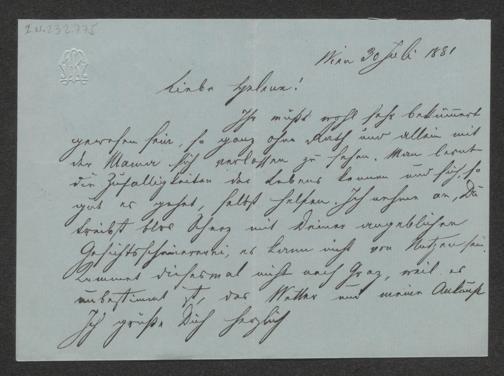 I.N. 232.775
Wien 30 Juli 1881
Liebe Helene!
Ihr müßt wohl sehr bekümmert
gewesen sein, so ganz ohne Rath und allein mit
der Mama sich verlassen zu sehen. Man lernt
die Zufälligkeiten des Lebens kennen und sich, so
gut es geht, selbst helfen. Ich nehme an, Du
treibst blos Scherz mit Deiner angeblichen
es kann nicht von Nutzen sein.
Kommet diesesmal nicht nach Graz, weil es
unbestimmt ist, das Wetter und meine Ankunft
Ich grüße Dich herzlich